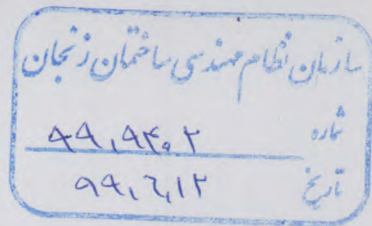 سازمان نظام مهندسی ساختمان زنجان
شماره ۹۹,۹۴۰۲
تاریخ ۹۹,۶,۱۲